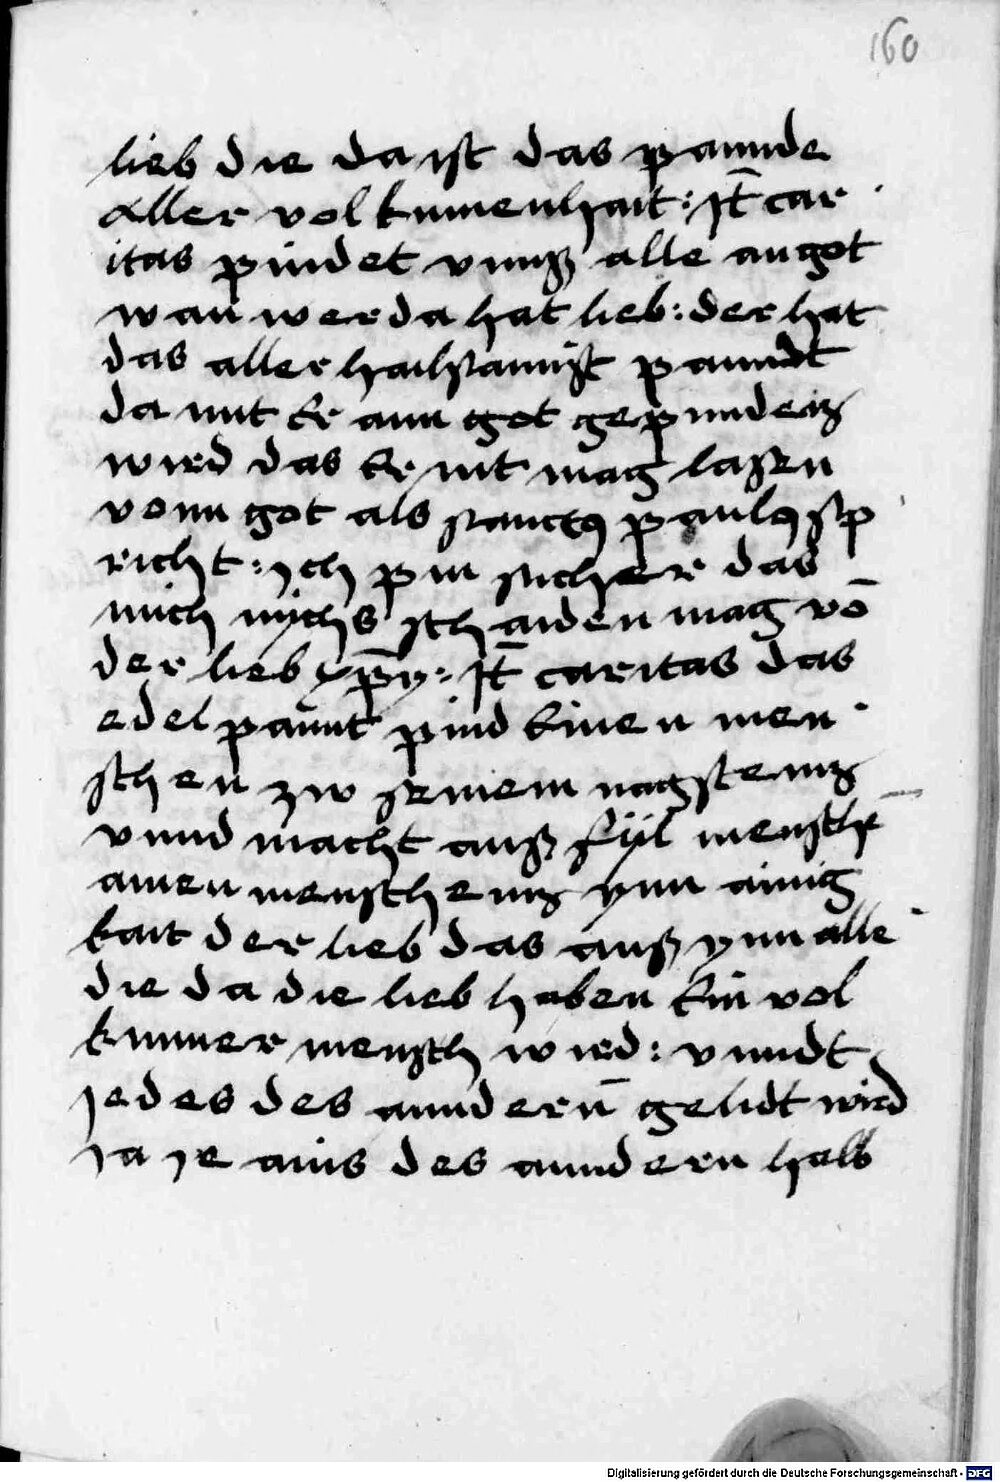 160
lieb die da ist das pannde
aller volkumenhait: Jt̄ car
itas pindet vnnß alle angot
wan̄ wer da hat lieb: der hat
das aller hailsamist panndt
da mit Er ann got gepunden
wird das Er nit mag laßen
vonn got als sanctꝰ paulꝰ sp
richt: ich pin sicher das
mich nichs schaiden mag vō
der lieb xp̄y: Jt̄ caritas das
edel pannt pind Einen men
schen zw seinem nagsten
vnnd macht auß fyl mensche
ainen menschen ynn ainig
kait der lieb das auß ynn alle
die da die lieb haben Ein vol
kumer mensch wird: vnndt
jedes des annderñ gelidt wird
ja je ains des anndern halb
Digitalisierung gefördert durch die Deutsche Forschungsgemeinschaft - DFG